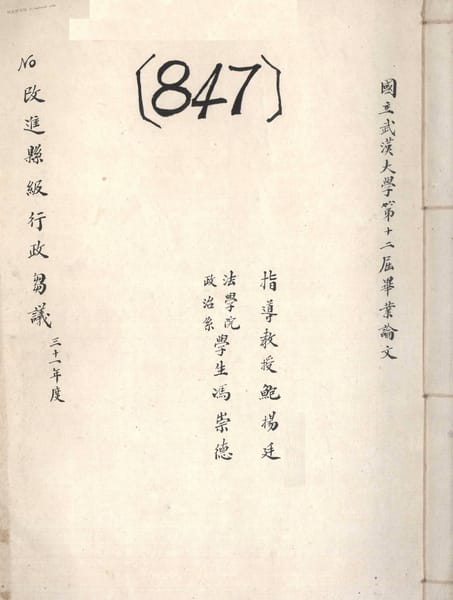 國立武漢大學第十二屆畢業論文
〔847〕
指導教授鮑揚廷
法學院
政治系
學生馮崇德
No 改進縣級行政芻議
三十一年度